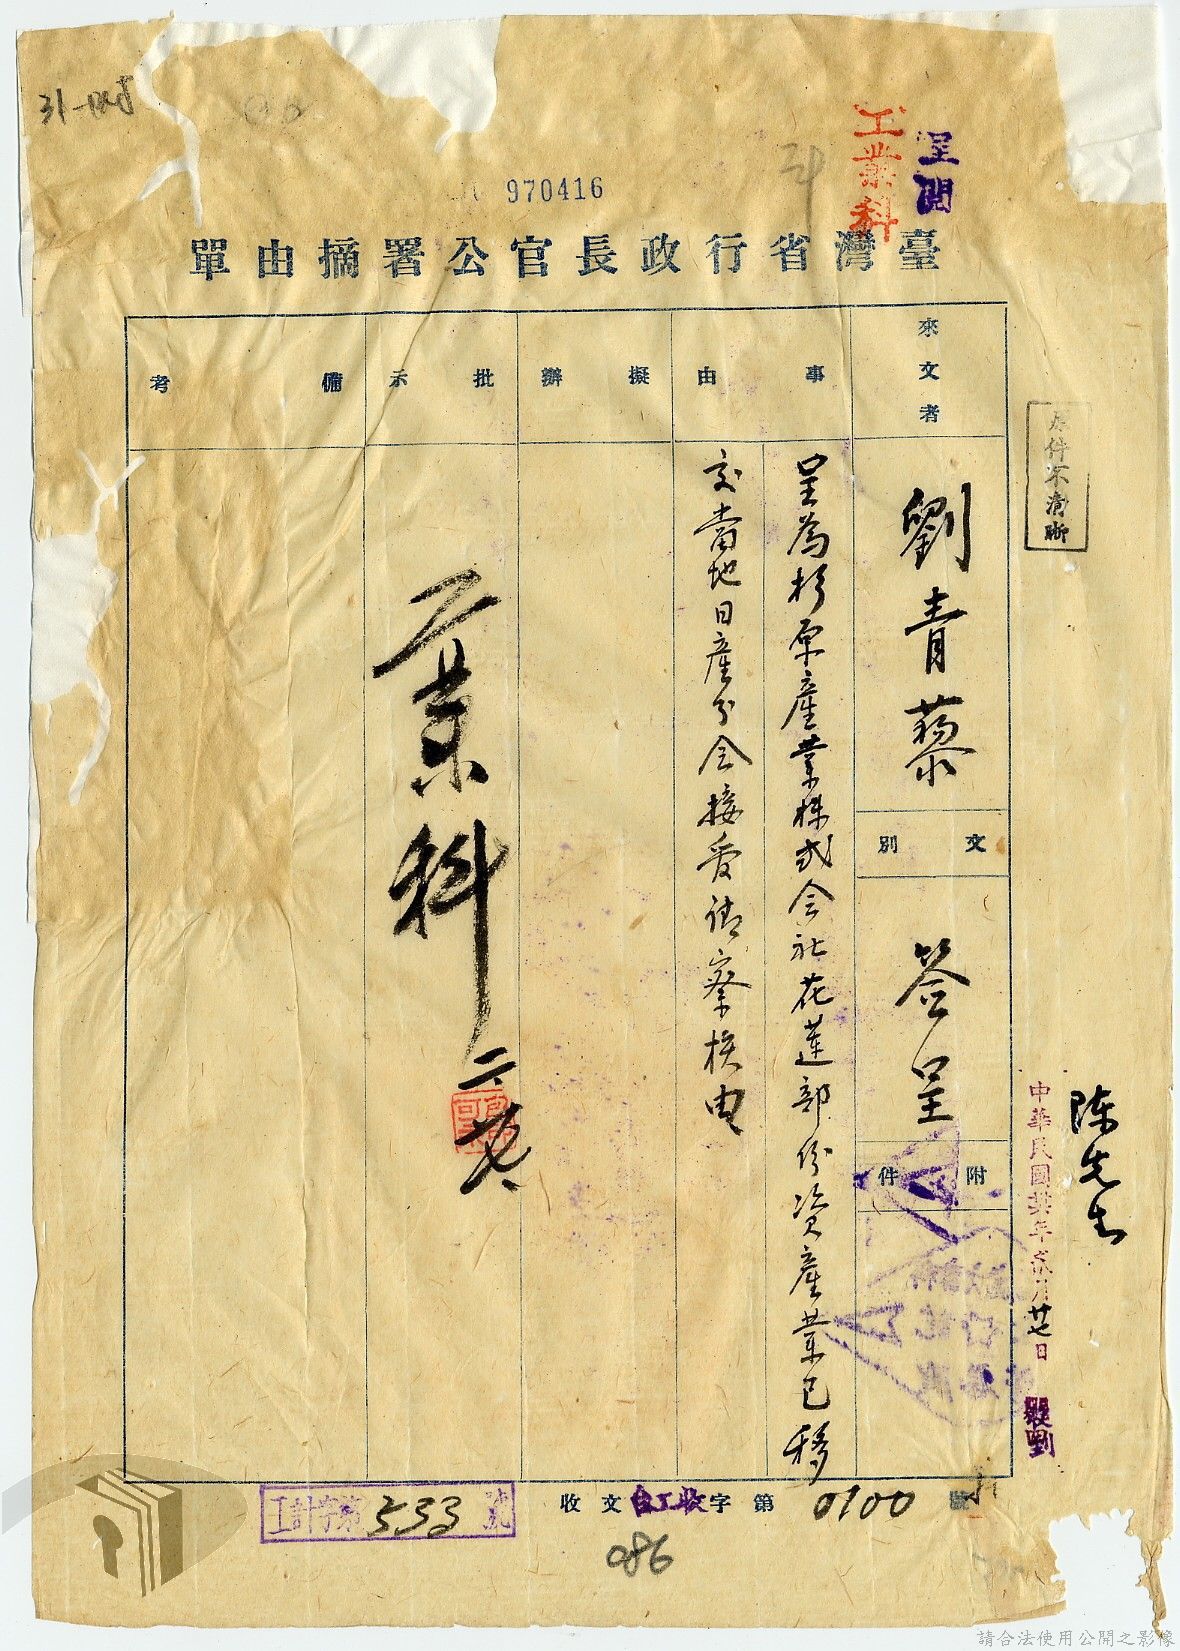 970416
工業科
呈閱
臺灣省行政長官公署摘由單
來文者
劉青藜
文別
簽呈
附件
事由
呈為杉原產業株式会社花蓮部份資產業已移
交當地日產分会接受請察核由
擬辦
批示
工業科
備考
本件不清晰
陳先生
中華民國卅年貳月廿七日
收文台工收字第0100號
工計字第533號
086
請合法使用公開之影像